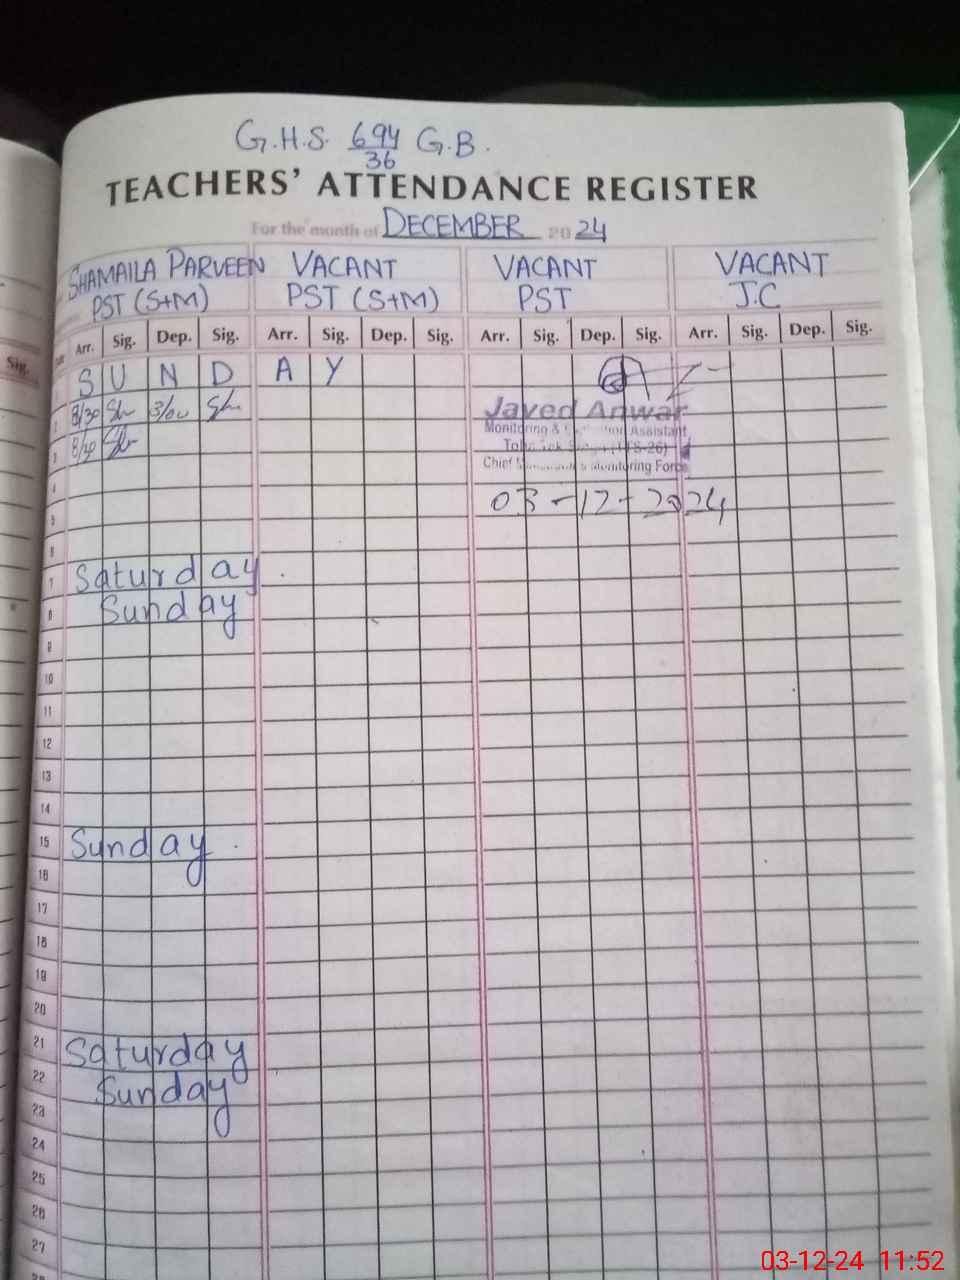 G.H.S. 694/36 G.B.
TEACHERS' ATTENDANCE REGISTER
For the month of DECEMBER 2024
SHAMAILA PARVEEN VACANT VACANT VACANT
PST (S+M) PST (S+M) PST J.C
Arr. Sig. Dep. Sig. Arr. Sig. Dep. Sig. Arr. Sig. Dep. Sig. Arr. Sig. Dep. Sig.
Sig.
SUNDAY
8/30 3/00
Javed Anwar
Monitoring & Assistant
3
Chief Monitoring Force
4
03-12-2024
5
6
7 Saturday
8 Sunday
9
10
11
12
13
14
15 Sunday
16
17
18
19
20
21 Saturday
22 Sunday
23
24
25
26
27
03-12-24 11:52